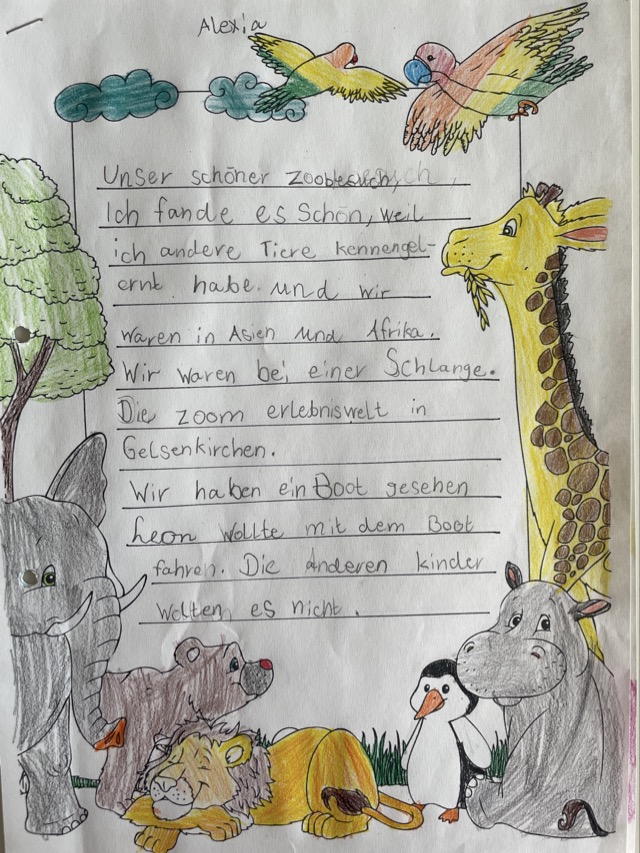 Alexia
Unser schöner Zoobesuch,
Ich fande es Schön, weil
ich andere Tiere kennengel-
ernt habe und wir
waren in Asien und Afrika.
Wir waren bei einer Schlange.
Die zoom erlebniswelt in
Gelsenkirchen.
Wir haben ein Boot gesehen
Leon wollte mit dem Boot
fahren. Die Anderen kinder
wolten es nicht.